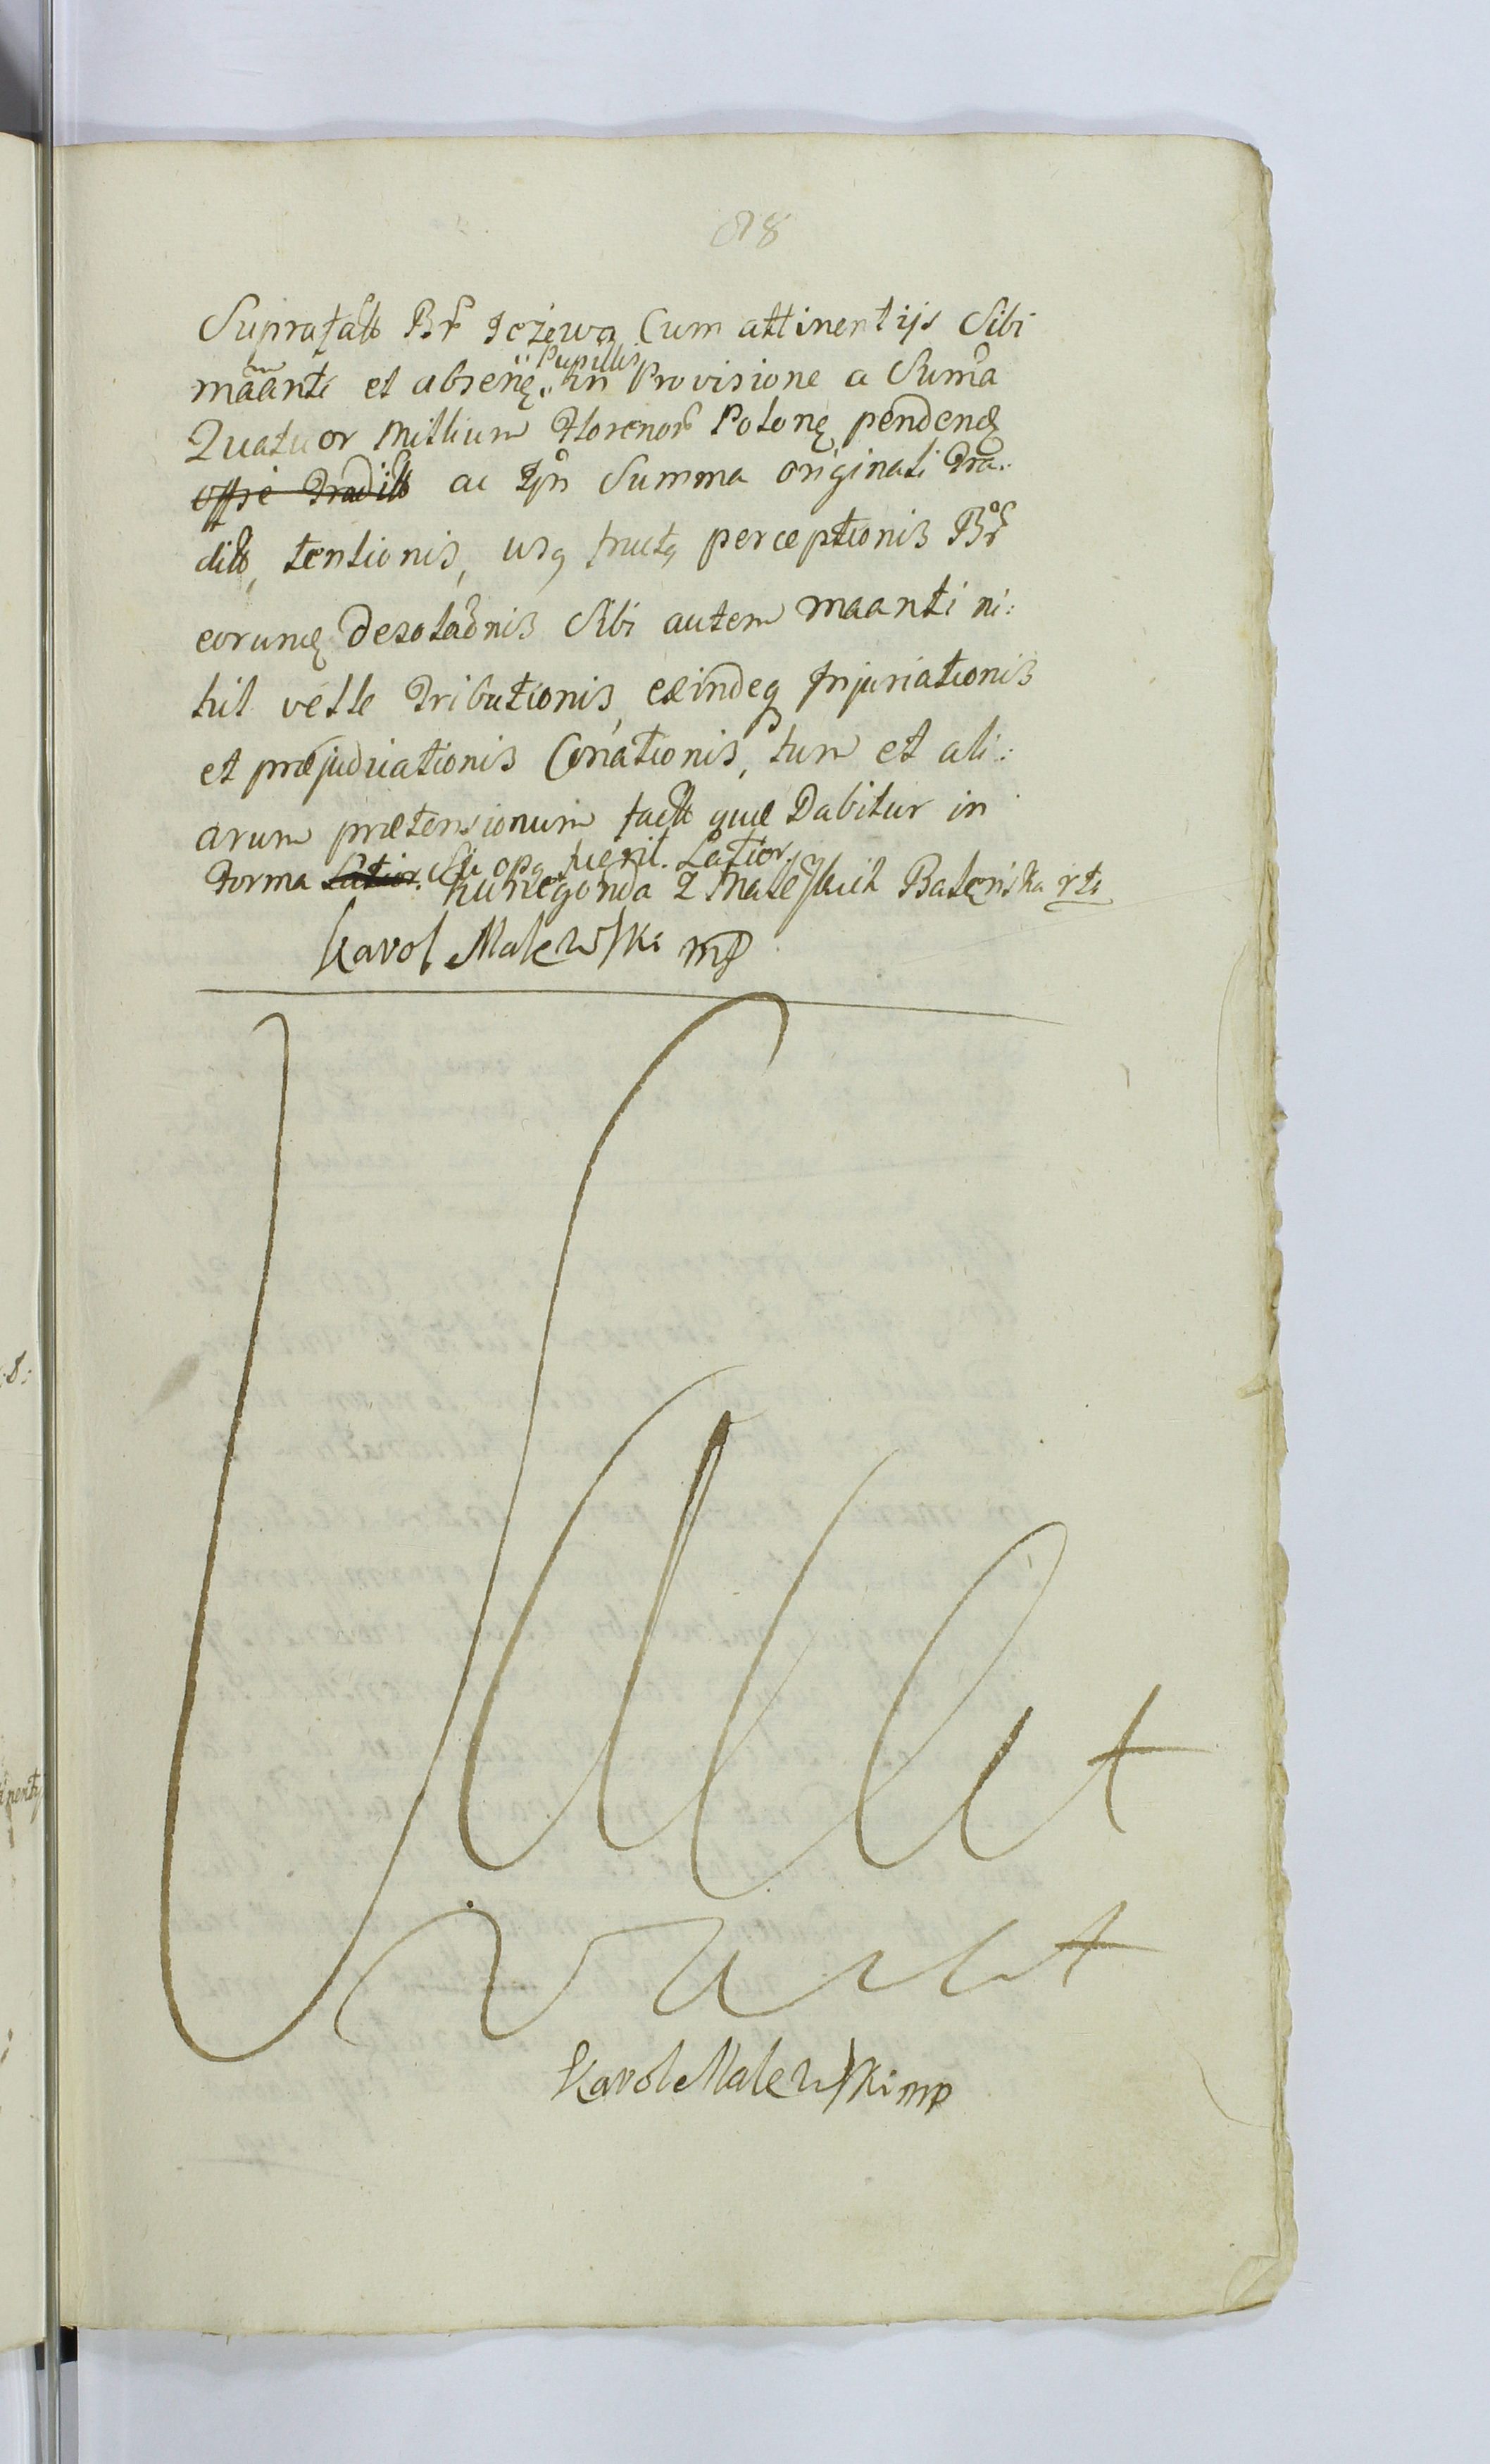 88
Supratact Br Jeżewa Cum attinentijs Sibi
maanti et absenę Pupillis in Provisione a Suma
Quatuor Millium Florenor Polonę pendenę
offse Tradit ac Ipn Summa originali Tra:
dit, tentionis, usq fructą perceptionis Br
eorumę Desolaonis Sibi autem maanti ni:
hil velle Tributionis, exindeq Injuriationis
et præjudiciationis Conationis, tum et ali:
arum prætensionum fact quæ Dabitur in
Forma Latior. Si opą fuerit. Latior.
Kunegonda z Malewskich Batęńska
Karol Malewski mp
Vacat
Karol Malewski mp